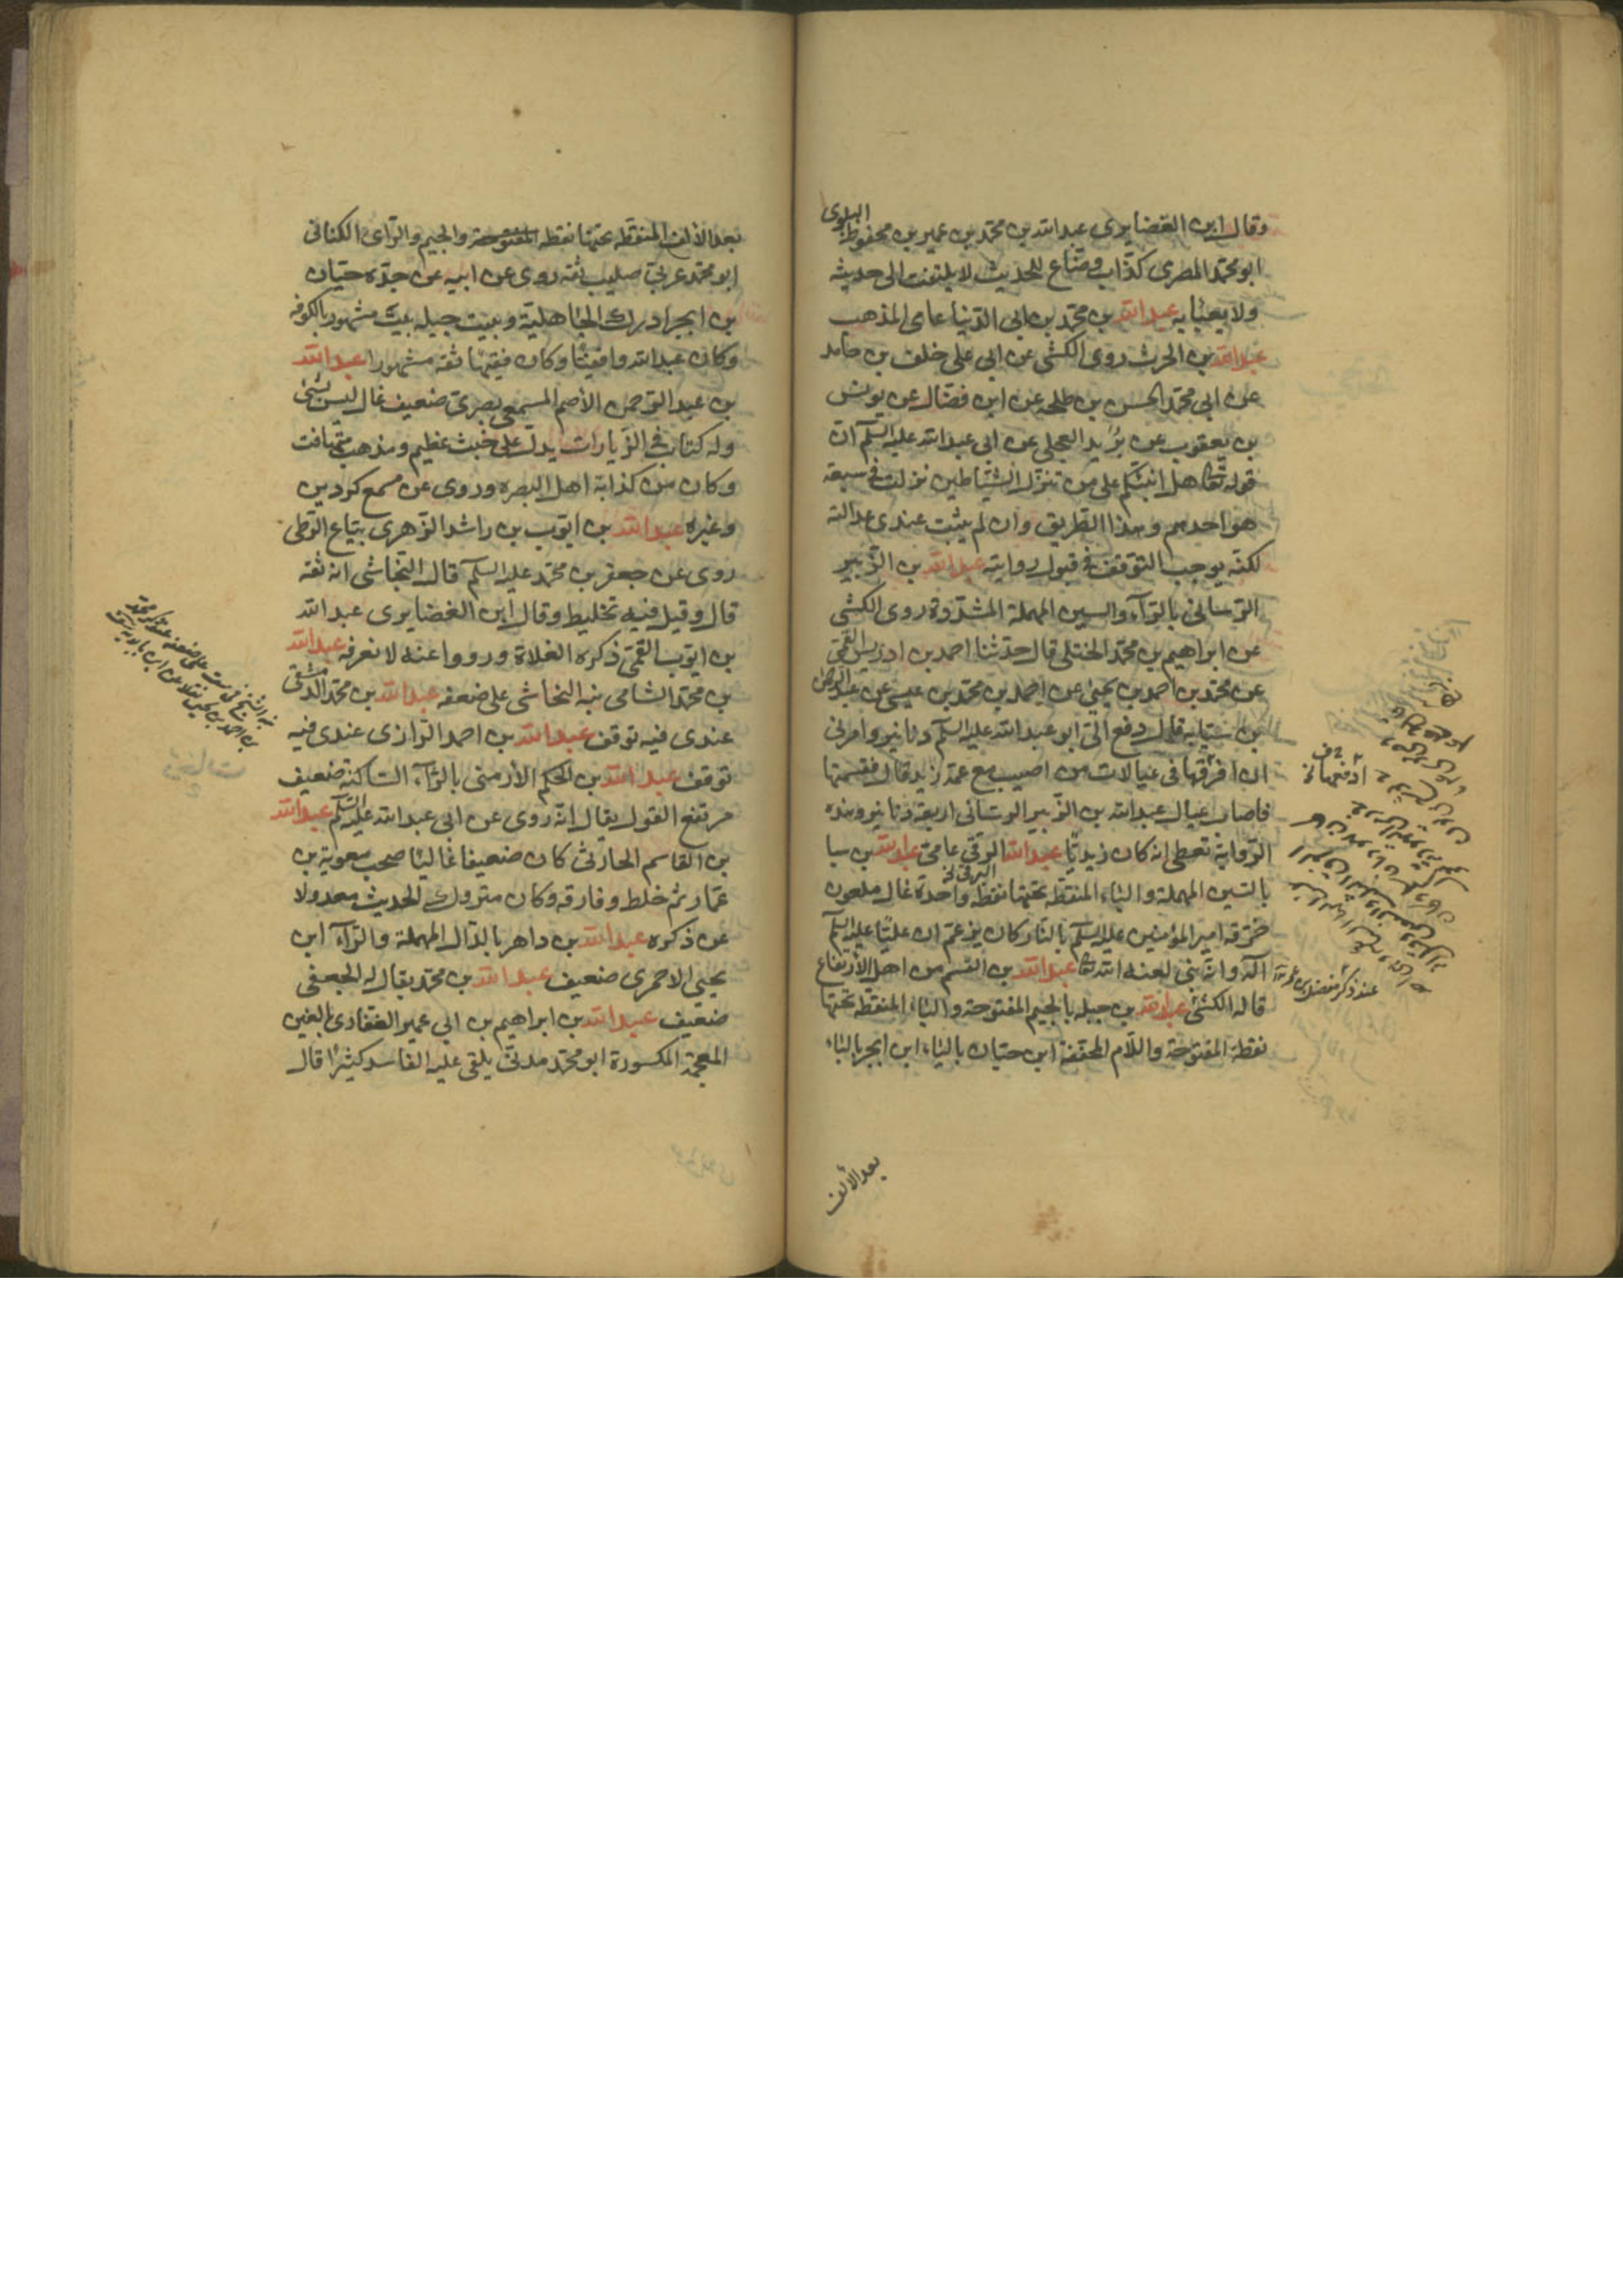 البلوى
وقال ابن الغضايرى عبدالله بن محمد بن عمير بن محفوظ
ابو محمد المصرى كذّاب وضّاع للحديث لا يلتفت الى حديثه
ولا يعبٔا به عبدالله بن محمد بن ابى الدّنيا عامى المذهب
عبدالله بن الحرث روى الكشى عن ابى على خلف بن حامد
عن ابى محمد الحسن بن طلحه عن ابن فضّال عن يونس
بن يعقوب عن بُرَيد العجلى عن ابى عبدالله عليه السلم ان
قوله تعا هل انبئكم على من تنزّل الشّياطين نزلت فى سبعة
هو احدهم وهذا الطريق وان لم يثبت عندى عدالته
لكنّه يوجب التوقف فى قبول روايته عبدالله بن الزّبير
الرّسانى بالرّآء والسين المهملة المشدّدة روى الكشى
عن ابراهيم بن محمد الختلى قال حدثنا احمد بن ادريس القمّى
عن محمد بن احمد بن يحيى عن احمد بن محمد بن عيسى عن عبدالرحمن
بن سيّابه قال دفع الىّ ابو عبدالله عليه السلم دنانير وامرنى
ان افرّقها فى عيالات من اصيب مع عمّه زيد قال فقسمتها
فاصاب عيال عبدالله بن الزّبير الرسانى اربعة دنانير وهذه
الرّواية تعطى انه كان زيديّا عبدالله الرقى عامىّ عبدالله بن سبا
البرقى خ
بالسّين المهملة والباء المنقطة تحتها نقطة واحدة غال ملعون
حرّقه امير المؤمنين عليه السلم بالنار كان يزعم ان عليّا عليه السلم
آله وانّه نبى لعنه الله تعا عبدالله بن القسم من اهل الارتفاع
قاله الكشى عبدالله بن جبله بالجيم المفتوحة والباء المنقطة تحتها
نقطة المفتوحة واللّام المخففة ابن حيّان بالياء ابن ابجر بالباء
عند ذكر مفضل بن عمر
بعد الالف
بعد الالف المنقطة تحتها نقطة المفتوحة والجيم والرّاى الكنانى
ابو محمد عربىّ صليب ثقه روى عن ابيه عن جدّه حيّان
بن ابجر ادرك الجاهلية وبيت جبله بيت مشهور بالكوفه
وكان عبدالله واقفيّا وكان فقيها ثقه مشهورا عبدالله
بن عبدالرّحمن الأصم المسمعى بصرىّ ضعيف غال ليس بشىٔ
وله كتاب فى الزّيارات يدلّ على خبث عظيم ومذهب متهافت
وكان من كذابة اهل البصره وروى عن مسمع كردين
وغيره عبدالله بن ايّوب بن راشد الزهرى بيّاع الزطى
روى عن جعفر بن محمد عليه السلم قال النّجاشى انه ثقه
قال وقيل فيه تخليط وقال ابن الغضايرى عبدالله
بن ايّوب القمّى ذكره الغلاة ورووا عنه لا نعرفه عبدالله
بن محمد الشامى نبه النجاشى على ضعفه عبدالله بن محمد الدّمشقى
عندى فيه توقف عبدالله بن احمد الرازى عندى فيه
توقف عبدالله بن الحكم الأرمنى بالرّآء الساكنة ضعيف
مرتفع القول يقال انّه روى عن ابى عبدالله عليه السلم عبدالله
بن القاسم الحارثى كان ضعيفا غاليًا صحب معوية بن
عمّار ثم خلط وفارقه وكان متروك الحديث معدولا
عن ذكره عبدالله بن داهر بالدّال المهملة والرّآء ابن
يحيى الاحمرى ضعيف عبدالله بن محمد يقال له الجعفى
ضعيف عبدالله بن ابراهيم بن ابى عمير الغفارى بالغين
المعجمة المكسورة ابو محمد مدنىّ يلقى عليه الفاسد كثيرًا قال